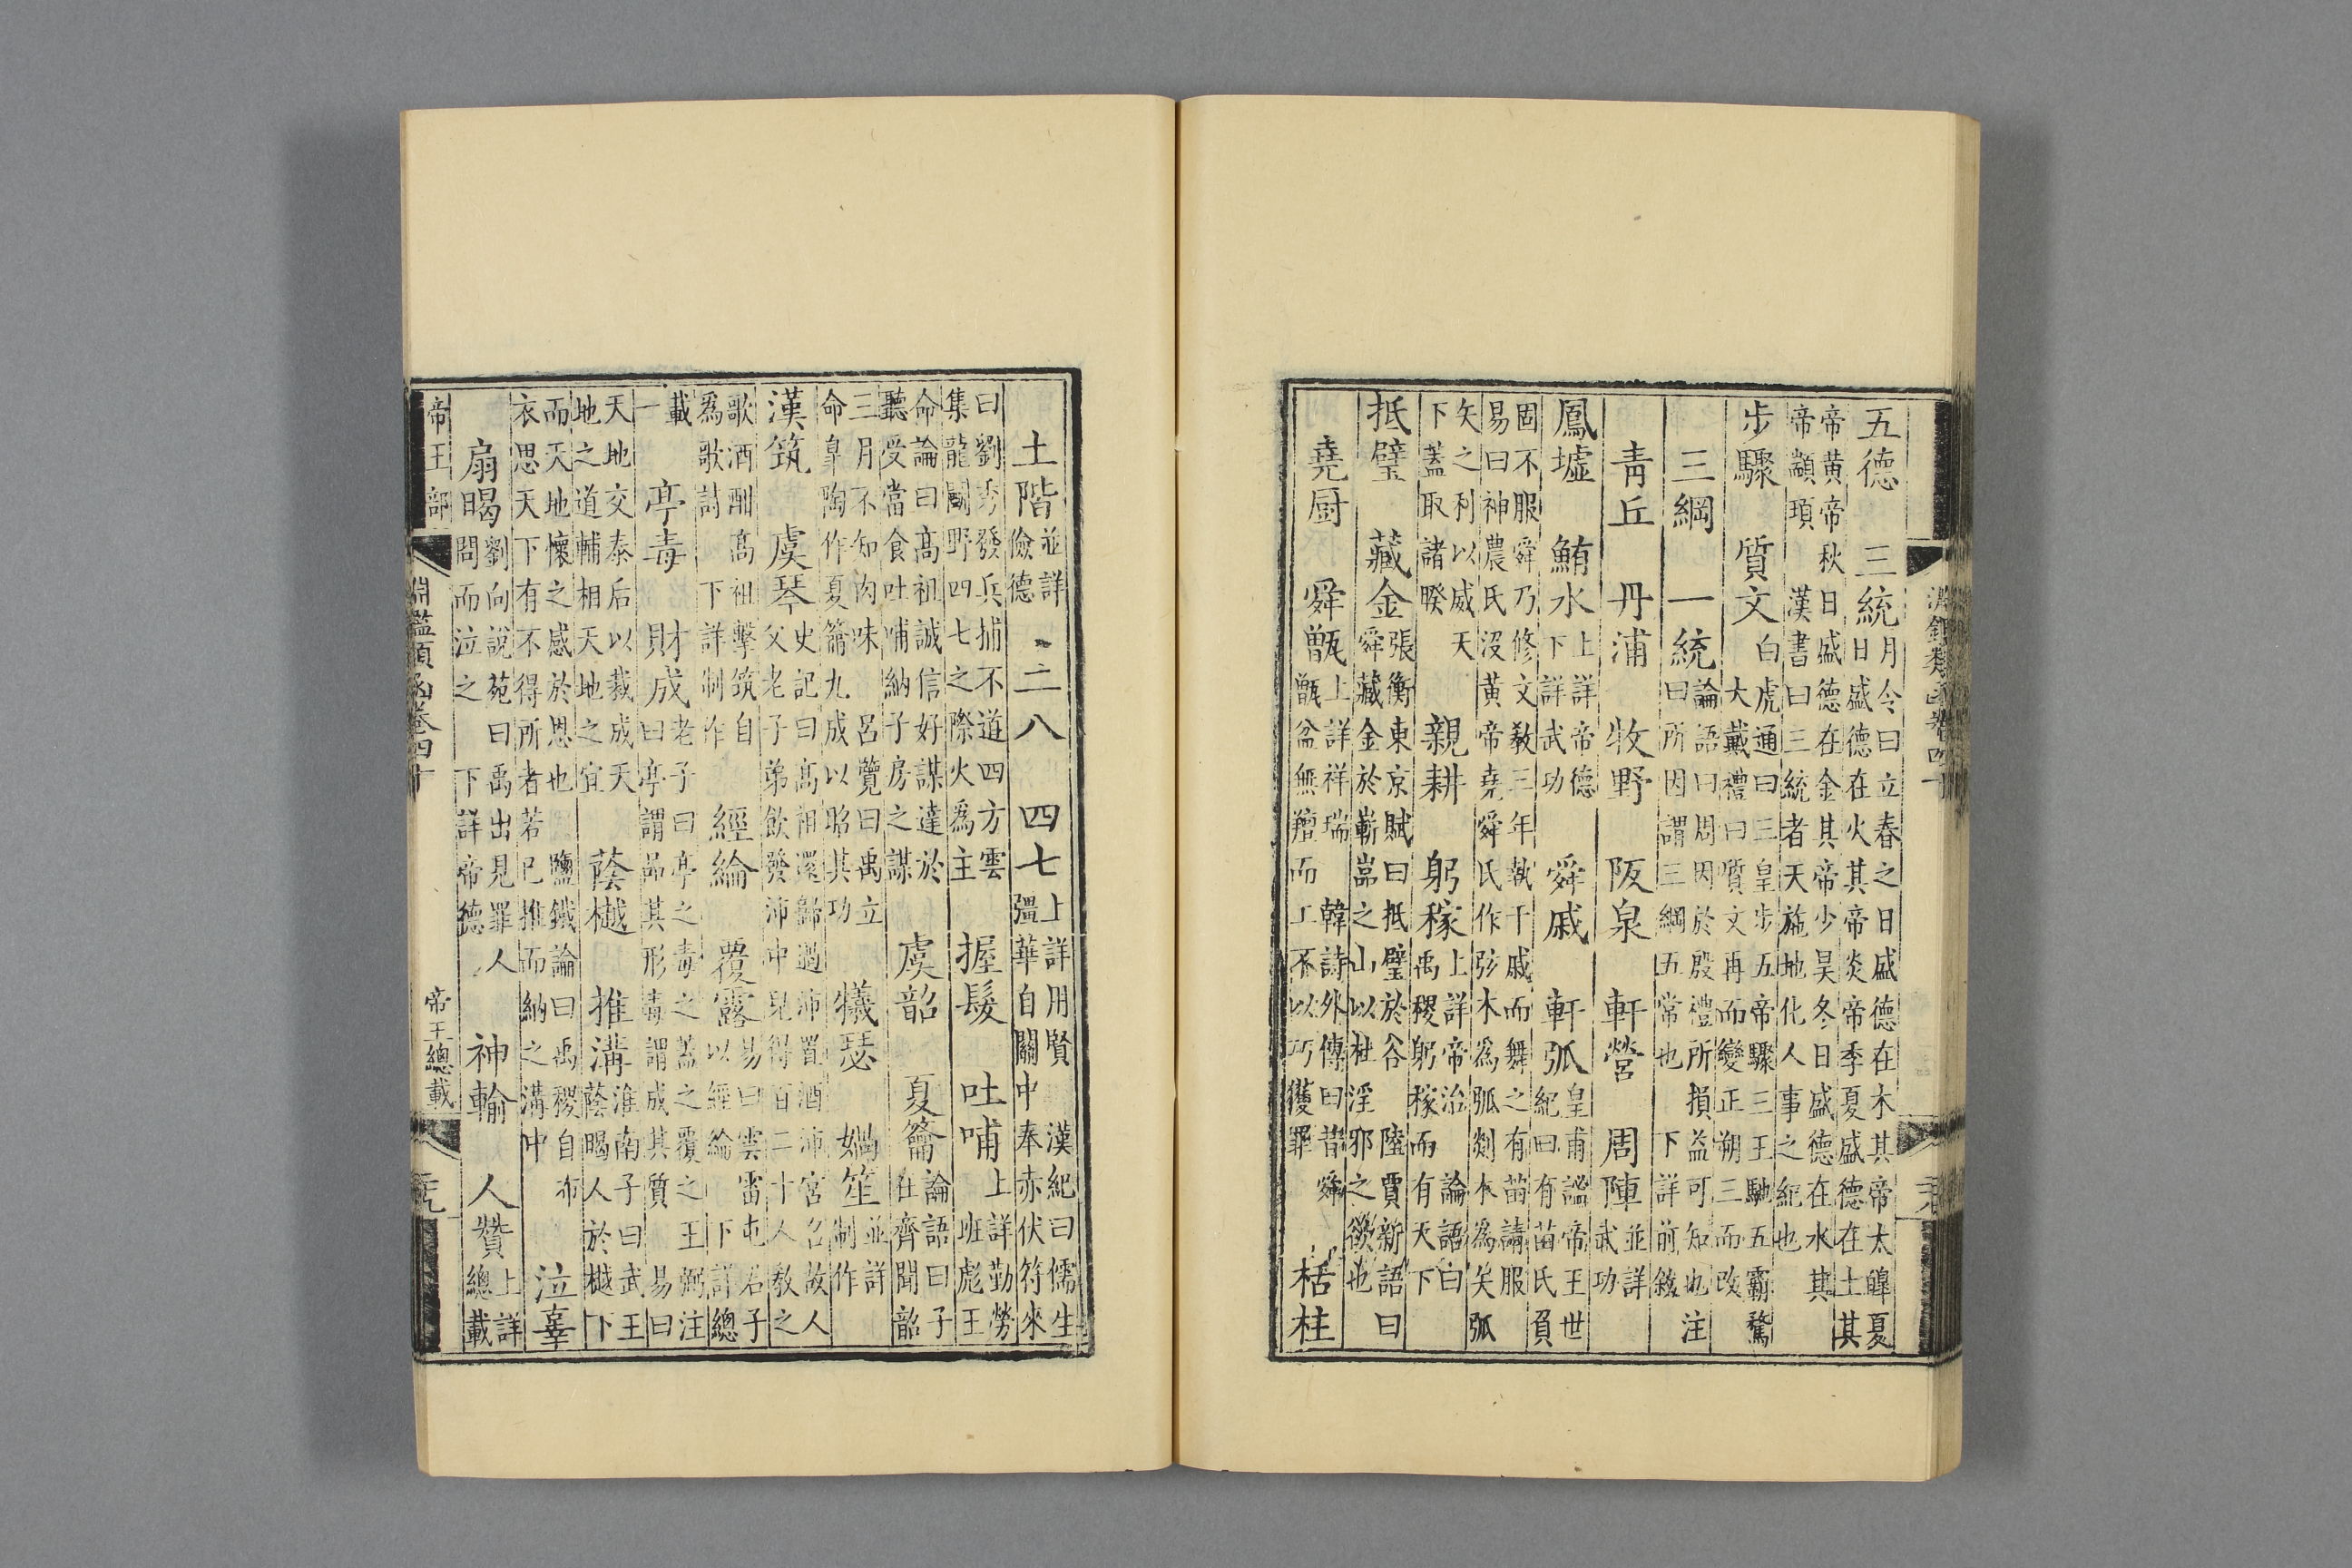 五德　三統月令曰立春之日盛德在木其帝太皥夏
日盛德在火其帝炎帝季夏盛德在土其
帝黄帝秋日盛德在金其帝少昊冬日盛德在水其
帝顓頊　漢書曰三統者天施地化人事之紀也
步驟　質文白虎通曰三皇步五帝驟三王馳五霸騖
大戴禮曰質文再而變正朔三而改
三綱　一統論語曰周因於殷禮所損益可知也注
曰所因謂三綱五常也　下詳前敘
青丘　丹浦　牧野　阪泉　軒營　周陣並詳
武功
鳳墟　鮪水上詳帝德
下詳武功　舜戚　軒弧皇甫謐帝王世
紀曰有苗氏負
固不服舜乃修文教三年執干戚而舞之有苗請服
易曰神農氏沒黄帝堯舜氏作弦木為弧剡木為矢弧
矢之利以威天
下蓋取諸暌　親耕　躬稼上詳帝治　論語曰
禹稷躬稼而有天下
抵璧　藏金張衡東京賦曰抵璧於谷　陸賈新語曰
舜藏金於嶄嵓之山以杜淫邪之欲也
堯厨　舜甑上詳祥瑞　韓詩外傳曰昔舜
甑盆無羶而工不以巧獲罪　栝柱
淵鑑類函卷四十
土階並詳
儉德　二八　四七上詳用賢　漢紀曰儒生
彊華自關中奉赤伏符來
曰劉秀發兵捕不道四方雲
集龍鬭野四七之際火為主　握髮　吐哺上詳勤勞
班彪王
命論曰高祖誠信好謀達於
聽受當食吐哺納子房之謀　虞韶　夏籥論語曰子
在齊聞韶
三月不知肉味　呂覽曰禹立
命臯陶作夏籥九成以昭其功　犧瑟　媧笙並詳
制作
漢筑　虞琴史記曰高祖還歸過沛置酒沛宮召故人
父老子弟飲發沛中兒得百二十人教之
歌酒酣高祖擊筑自
為歌歌詩　下詳制作　經綸　覆露易曰雲雷屯君子
以經綸　下詳總
載
一　亭毒　財成老子曰亭之毒之蓋之覆之王弼注
曰亭謂品其形毒謂成其質　易曰
天地交泰后以裁成天
地之道輔相天地之宜　蔭樾　推溝淮南子曰武王
蔭暍人於樾下
而天地懷之感於恩也　鹽鐵論曰禹稷自布
衣思天下有不得所者若已推而納之溝中　泣辜
扇暍劉向說苑曰禹出見罪人
問而泣之　下詳帝德　神輸　人贊上詳
總載
帝王部　淵鑑類函卷四十　帝王總載